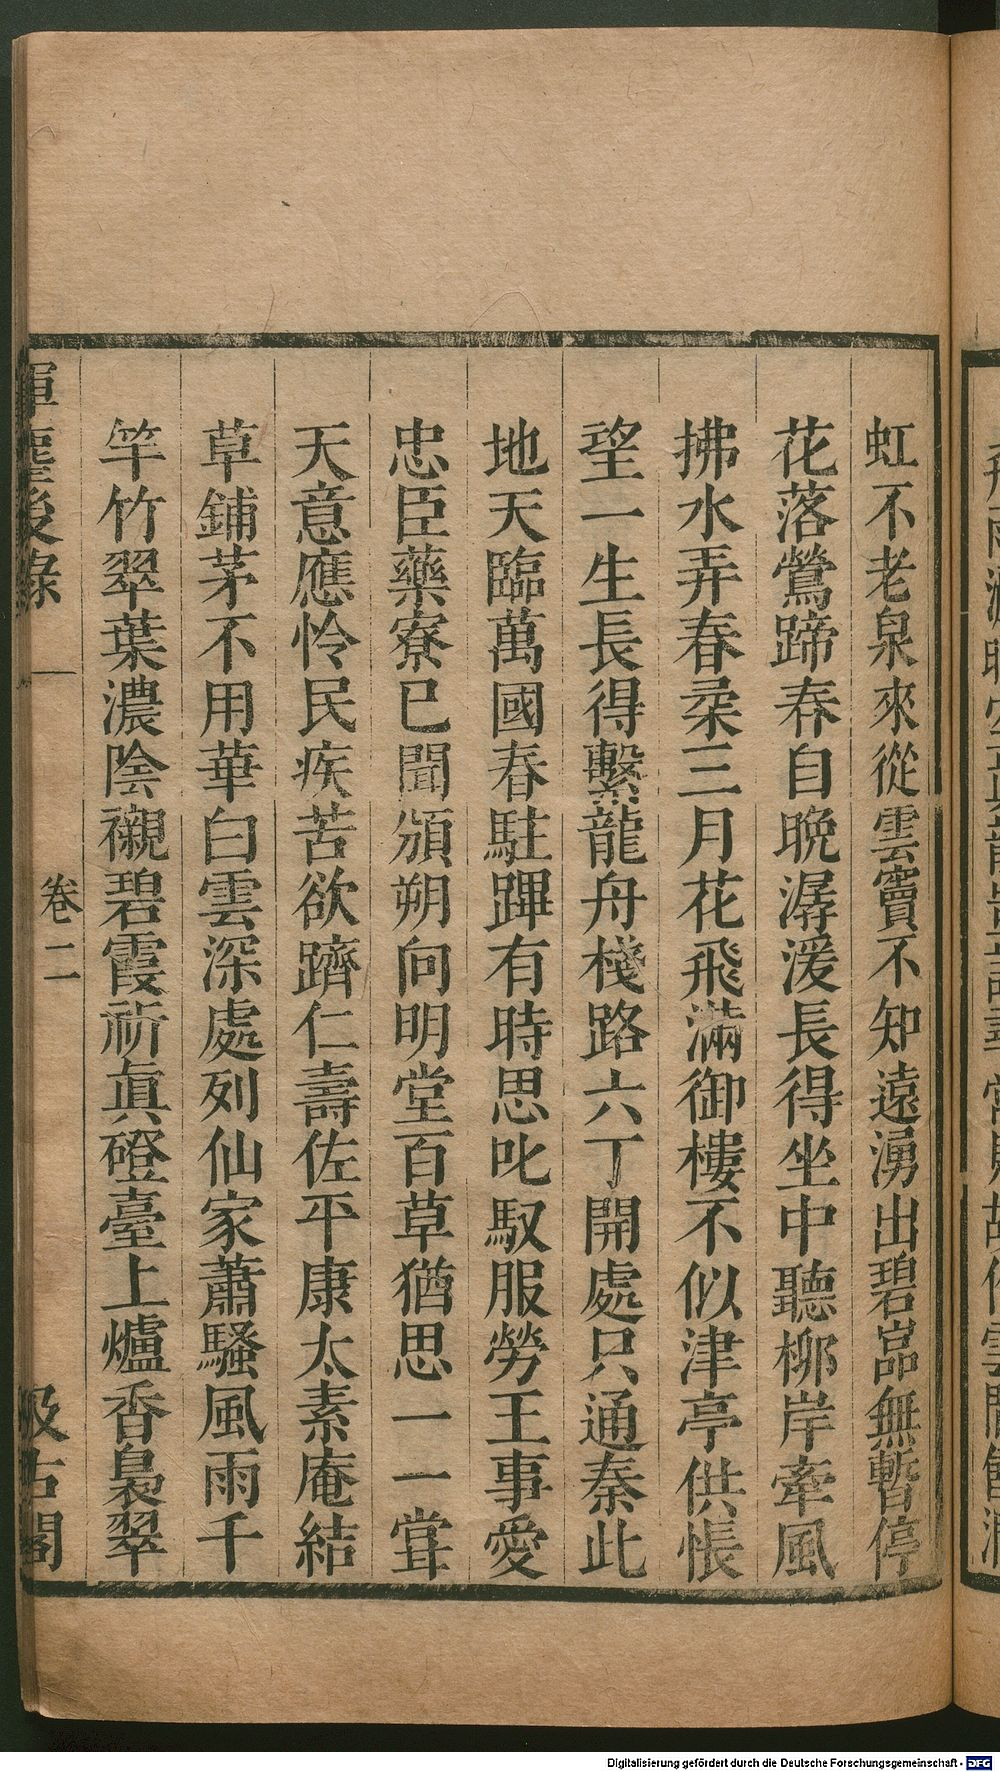 虹不老泉來從雲竇不知遠湧出碧嵓無暫停
花落鶯蹄春自晚潺湲長得坐中聽栁岸牽風
拂水弄春柔三月花飛滿御樓不似津亭供悵
望一生長得繫龍舟棧路六丁開處只通秦此
地天臨萬國春駐蹕有時思叱馭服勞王事愛
忠臣藥寮已聞頒朔向明堂百草猶思一一甞
天意應怜民疾苦欲躋仁壽佐平康太素庵結
草鋪茅不用華白雲深處列仙家蕭騷風雨千
竿竹翠葉濃陰襯碧霞祈眞磴臺上爐香裊翠
揮麈後錄
卷二
汲古閣
Digitalisierung gefördert durch die Deutsche Forschungsgemeinschaft - DFG